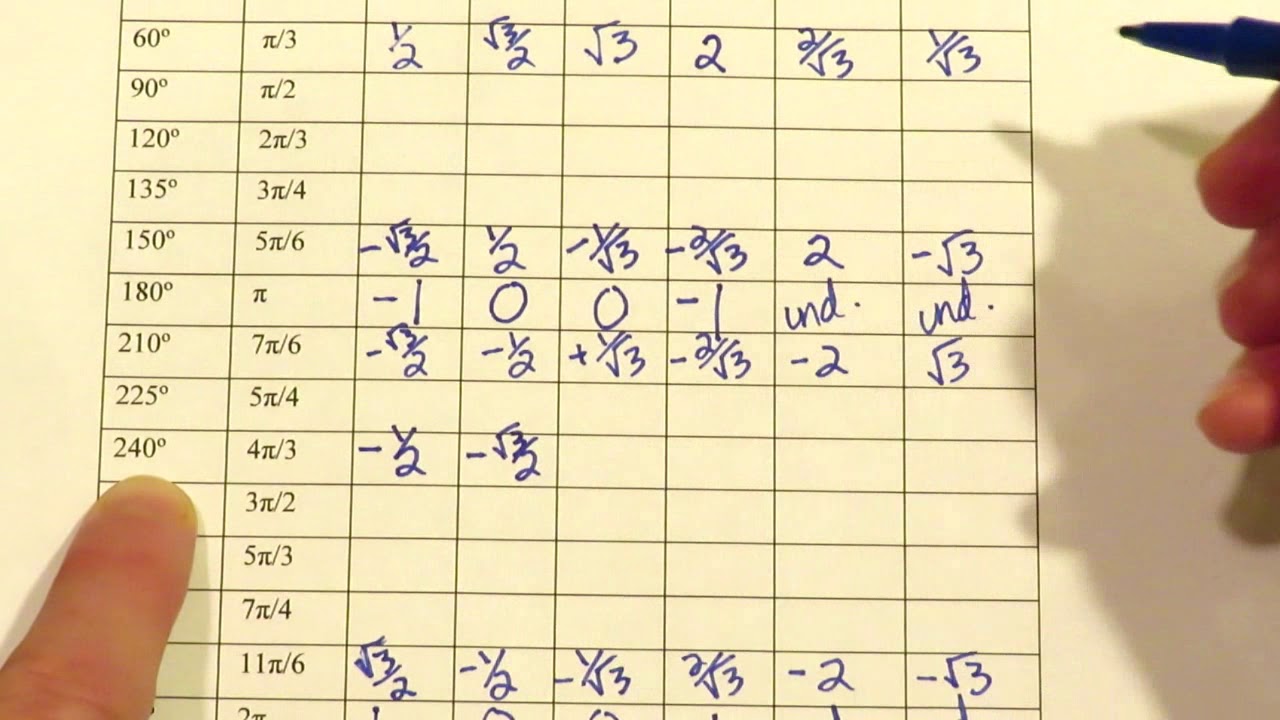 60º π/3 1/2 √3/2 √3 2 2/√3 1/√3
90º π/2
120º 2π/3
135º 3π/4
150º 5π/6 -√3/2 1/2 -1/√3 -2/√3 2 -√3
180º π -1 0 0 -1 und. und.
210º 7π/6 -√3/2 -1/2 +1/√3 -2/√3 -2 √3
225º 5π/4
240º 4π/3 -1/2 -√3/2
3π/2
5π/3
7π/4
11π/6 √3/2 -1/2 -1/√3 2/√3 -2 -√3
2π